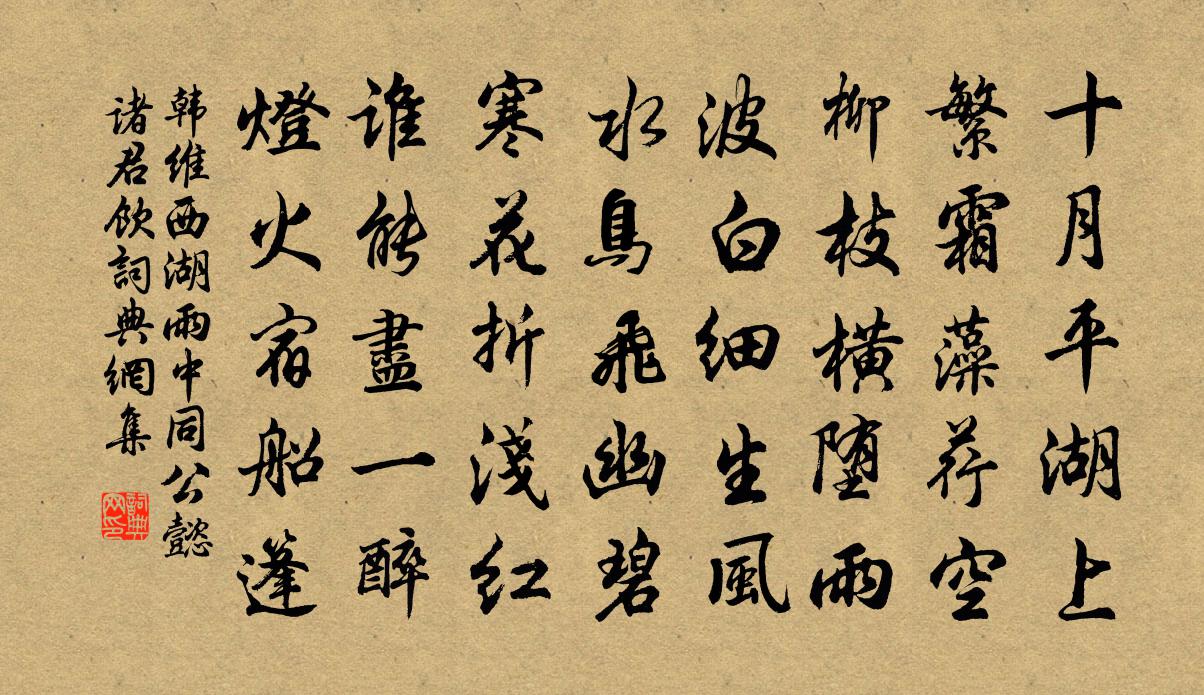 十月平湖上
繁霜藻荇空
柳枝橫堕雨
波白細生風
水鳥飛幽碧
寒花折淺红
谁能盡一醉
燈火宿船篷
韩维西湖雨中同公懿
诸君飲詞典網集
詞典
网印